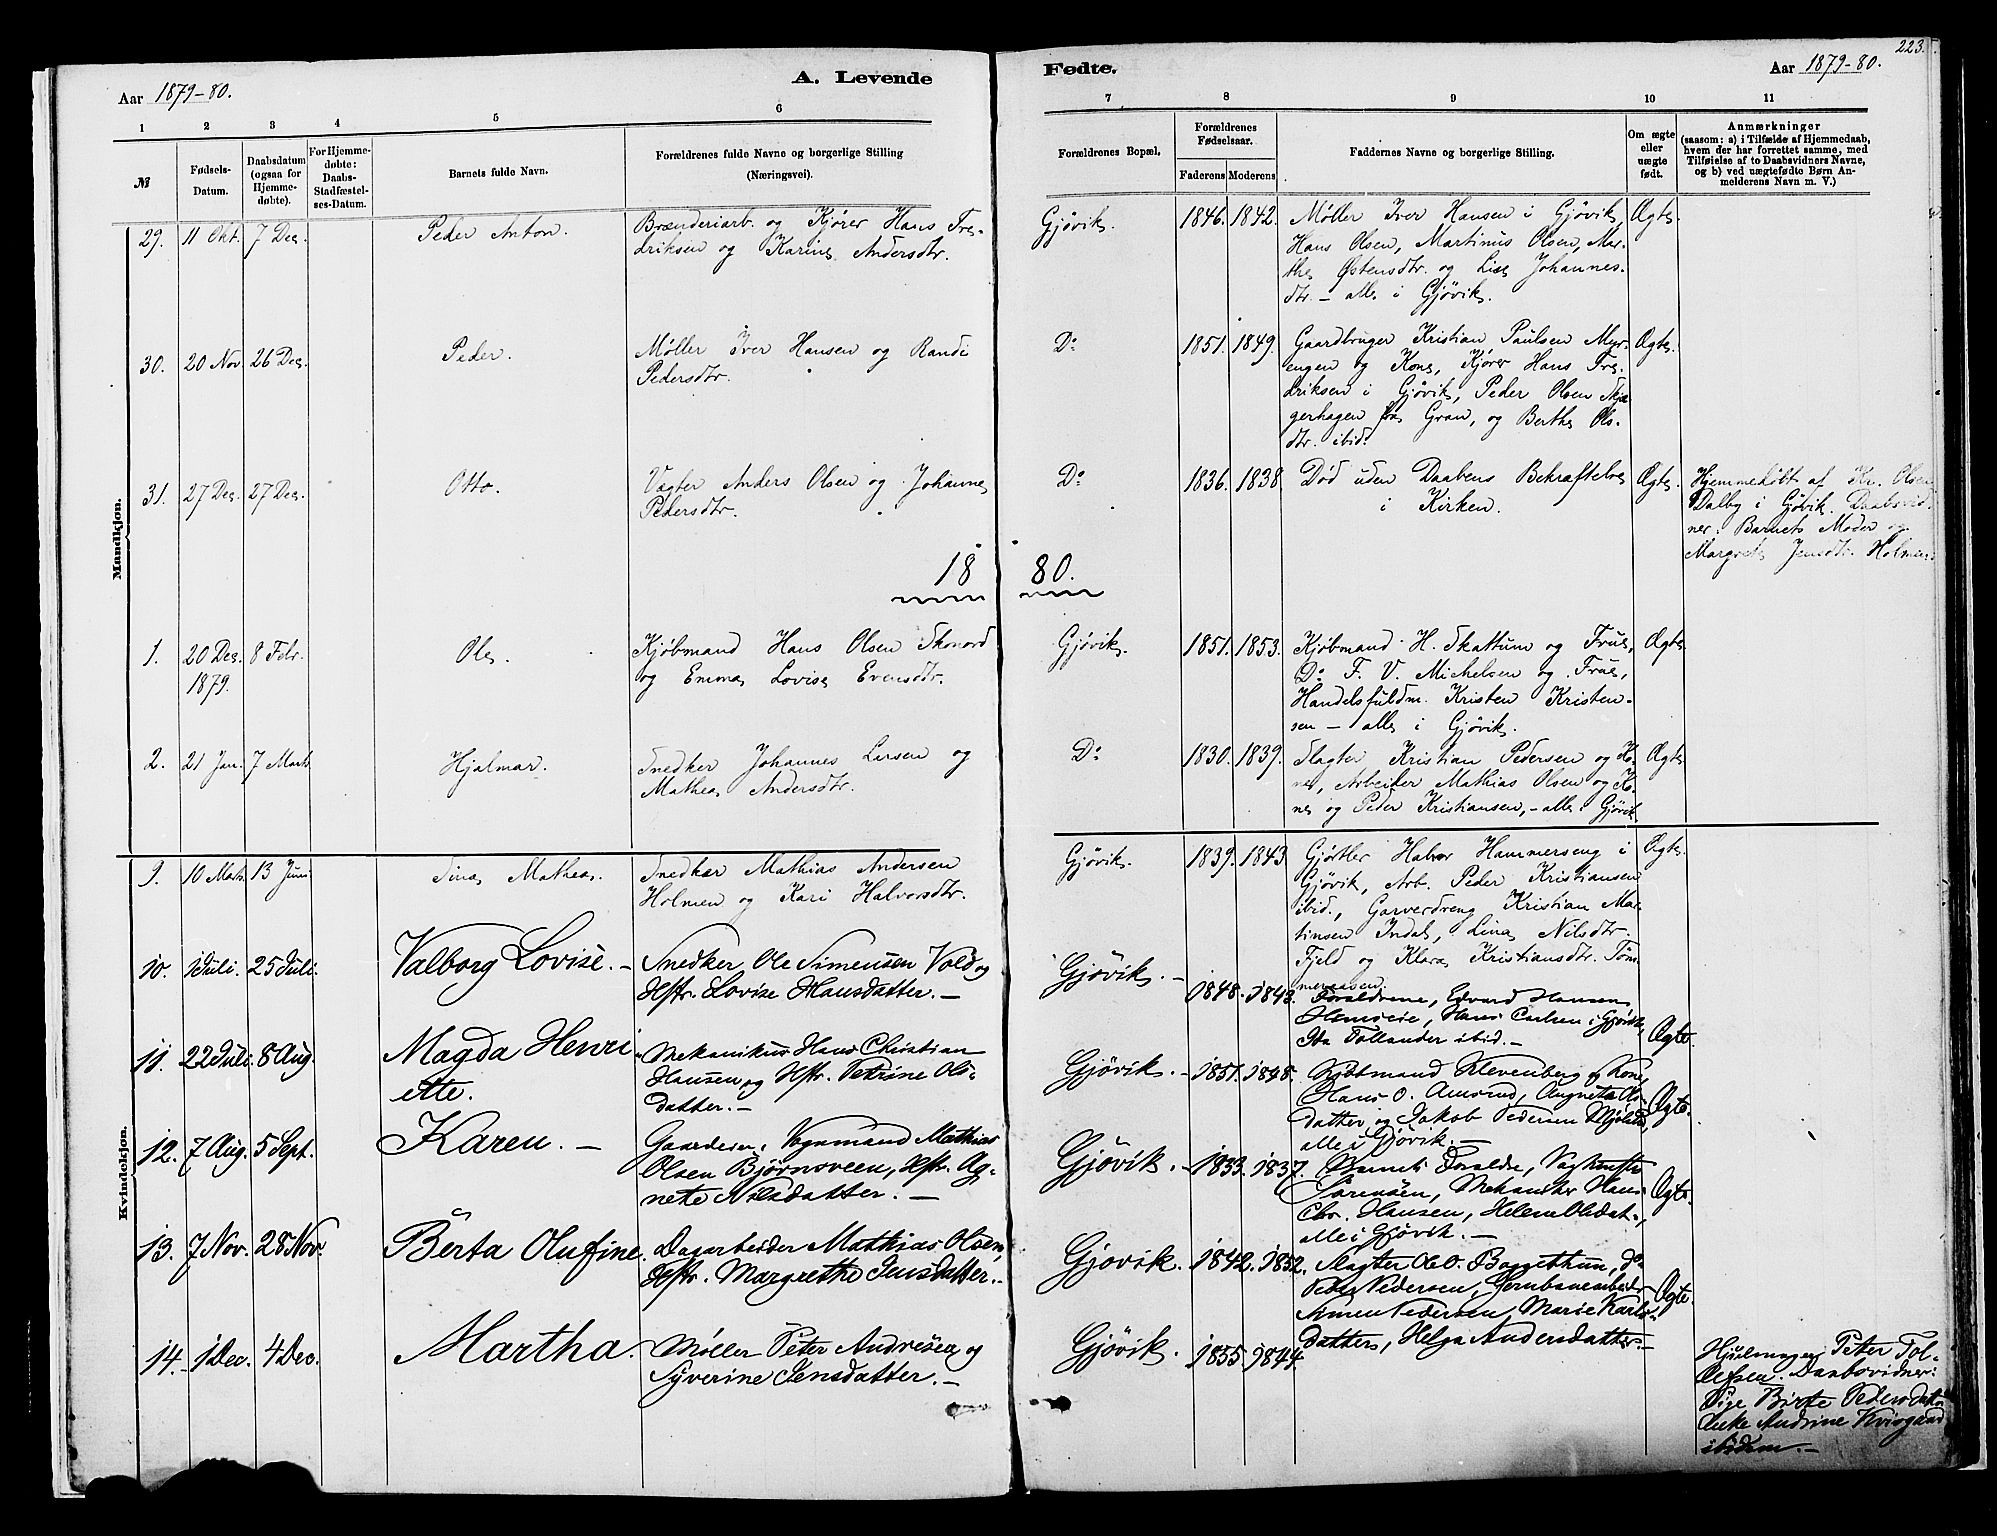 223.
Aar 1879-80.
A. Levende
Fødte.
Aar 1879-80.
1 2 3 4 5 6
7 8 9 10 11
№
Fødsels-
Datum.
Daabsdatum
(ogsaa for
Hjemme-
døbte).
For Hjemme-
døbte:
Daabs-
Stadfæstel-
ses-Datum.
Barnets fulde Navn.
Forældrenes fulde Navne og borgerlige Stilling
(Næringsvei).
Forældrenes Bopæl.
Forældrenes
Fødselsaar.
Faderens Moderens
Faddernes Navne og borgerlige Stilling.
Om ægte
eller
uægte
født.
Anmærkninger
(saasom: a) i Tilfælde af Hjemmedaab,
hvem der har forrettet samme, med
Tilføielse af to Daabsvidners Navne,
og b) ved uægtefødte Børn An-
melderens Navn m. V.)
Mandkjøn.
29. 11 Okt. 7 Dec. Peder Anton.
Brænderiarb. og Kjører Hans Fre-
driksen og Karine Andersdtr.
Gjøvik. 1846. 1842.
Møller Iver Hansen i Gjøvik,
Hans Olsen, Martinus Olsen, Mar-
the Østensdtr. og Lise Johannes-
dtr. - alle i Gjøvik.
Ægte.
30. 20 Nov. 26 Dec. Peder.
Møller Iver Hansen og Randi
Pedersdtr.
Do 1851. 1849.
Gaardbruger Kristian Paulsen Myr-
engen og Kone, Kjører Hans Fre-
driksen i Gjøvik, Peder Olsen
gerhagen fra Gran, og Berthe Ols-
dtr. ibid.
Ægte.
31. 27 Dec. 27 Dec. Otto.
Vægter Anders Olsen og Johanne
Pedersdtr.
Do 1836. 1838.
Død uden Daabens Bekræftelse
i Kirken.
Ægte.
Hjemmedøbt af Kr. Olsen
Dalby i Gjøvik. Daabsvid-
ner: Barnets Moder og
Margrete Jensdtr. Holmen.
18 80.
1. 20 Dec. 8 Febr. Ole.
1879.
Kjøbmand Hans Olsen Skonord
og Emma Lovise Evensdtr.
Gjøvik. 1851. 1853.
Kjøbmand H. Skattum og Frue,
Do F. V. Michelsen og Frue,
Handelsfuldm. Kristen Kristen-
sen - alle i Gjøvik.
Ægte
2. 21 Jan. 7 Marts Hjalmar.
Snedker Johannes Larsen og
Mathea Andersdtr.
Do 1830. 1839.
Slagter Kristian Pedersen og Ko-
ne, Arbeider Mathias Olsen og Ko-
ne og Peder Kristiansen, - alle i Gjøvik
Ægte
Kvindekjøn.
9. 10 Marts 13 Juni Sina Mathea.
Snedker Mathias Andersen
Holmen og Kari Halvorsdtr.
Gjøvik. 1839. 1843
Gjørtler Halvor Hammerseng i
Gjøvik, Arb. Peder Kristiansen
ibid., Garverdreng Kristian Mar-
tinsen Indal, Lina Nilsdtr.
Fjeld og Klara Kristiansdtr. Tøm-
meraasen.
Ægte.
10. 1 Juli. 25 Juli. Valborg Lovise. -
Snedker Ole Simensen Vold og
Hstr. Lovise Hansdatter. -
Gjøvik. - 1848. 1843.
Forældrene, Edvard Hansen
Hans Carlsen i Gjøvik,
Ida Tollander ibid. -
Ægte.
11. 22 Juli. 8 Aug. Magda Henri
ette.
Mekanikus Hans Christian
Hansen og Hstr. Petrine Ols-
datter. -
Gjøvik. - 1851. 1848.
Kjøbmand Klevenberg og Kone
Hans O. Amsrud, Augneta Ols-
datter og Jakob Pedersen
alle i Gjøvik. -
Ægte.
12. 7 Aug. 5 Sept. Karen. -
Gaardeier, Vognmand Mathias
Olsen Bjørnsveen, Hstr. Ag-
nete Nilsdatter. -
Gjøvik. - 1833. 1837.
Barnets Forældre,
Sørensen, Mekaniker Hans
Chr. Hansen, Helene Olsdat.,
alle i Gjøvik. -
Ægte.
13. 7 Nov. 28 Nov. Berta Olufine.
Dagarbeider Mathias Olsen,
Hstr. Margrethe Jensdatter. -
Gjøvik. 1842. 1852.
Slagter Ole O. Baggethun, do
Peder Pedersen, Jernbanearbeider
Simen Pedersen, Marie Karls-
datter, Helga Andersdatter. -
Ægte.
14. 1 Dec. 4 Dec. Martha.
Møller Peter Andresen og
Syverine Jensdatter. -
Gjøvik. 1855. 1844.
Hjulmager Peter Tol-
lefsen. Daabsvidner:
Pige Birte Pedersdatter
Enke Andrine Kvisgaard
ibidem. -